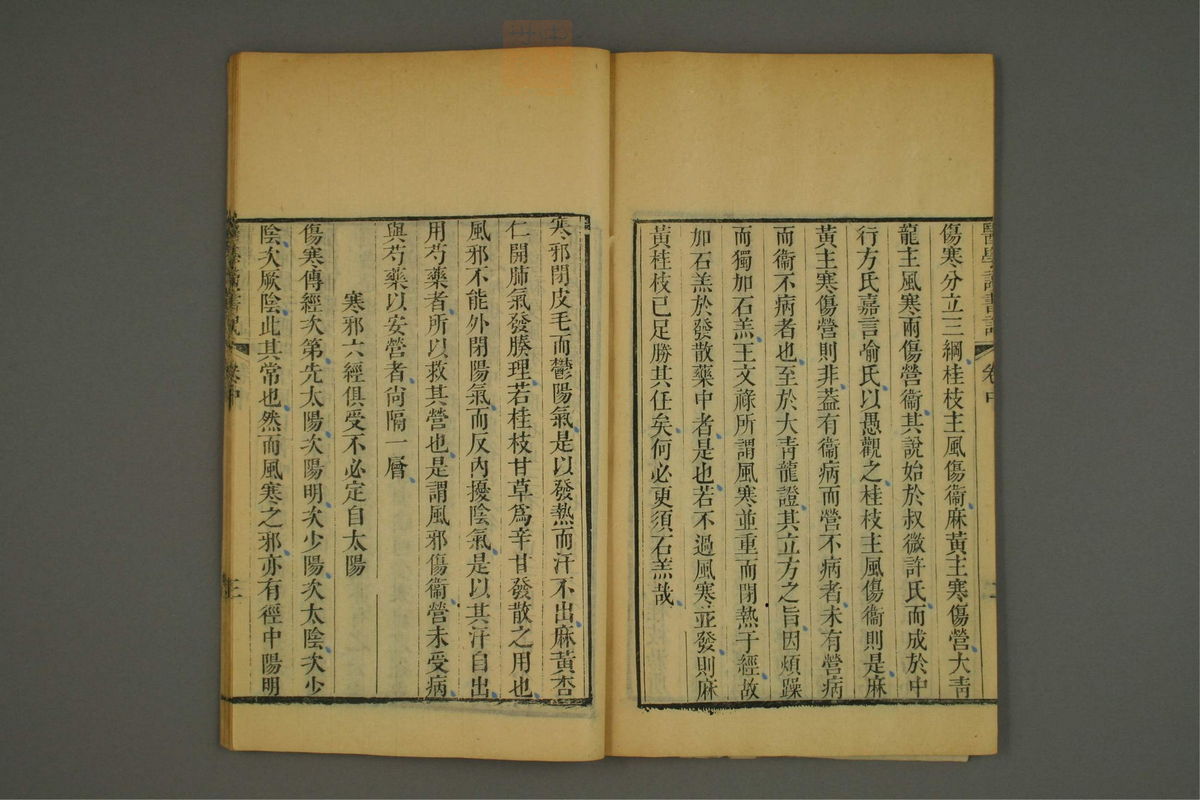 傷寒分立三綱桂枝主風傷衞麻黃主寒傷營大青
龍主風寒兩傷營衞其說始於叔微許氏而成於中
行方氏嘉言喻氏以愚觀之桂枝主風傷衞則是麻
黃主寒傷營則非葢有衞病而營不病者未有營病
而衞不病者也至於大青龍證其立方之旨因煩躁
而獨加石羔王文祿所謂風寒並重而閉熱于經故
加石羔於發散藥中者是也若不過風寒並發則麻
黃桂枝已足勝其任矣何必更須石羔哉
寒邪閉皮毛而鬱陽氣是以發熱而汗不出麻黃杏
仁開肺氣發腠理若桂枝甘草爲辛甘發散之用也
風邪不能外閉陽氣而反內擾陰氣是以其汗自出
用芍藥者所以救其營也是謂風邪傷衞營未受病
與芍藥以安營者尙隔一層
寒邪六經俱受不必定自太陽
傷寒傳經次第先太陽次陽明次少陽次太陰次少
陰次厥陰此其常也然而風寒之邪亦有徑中陽明
卷中
三